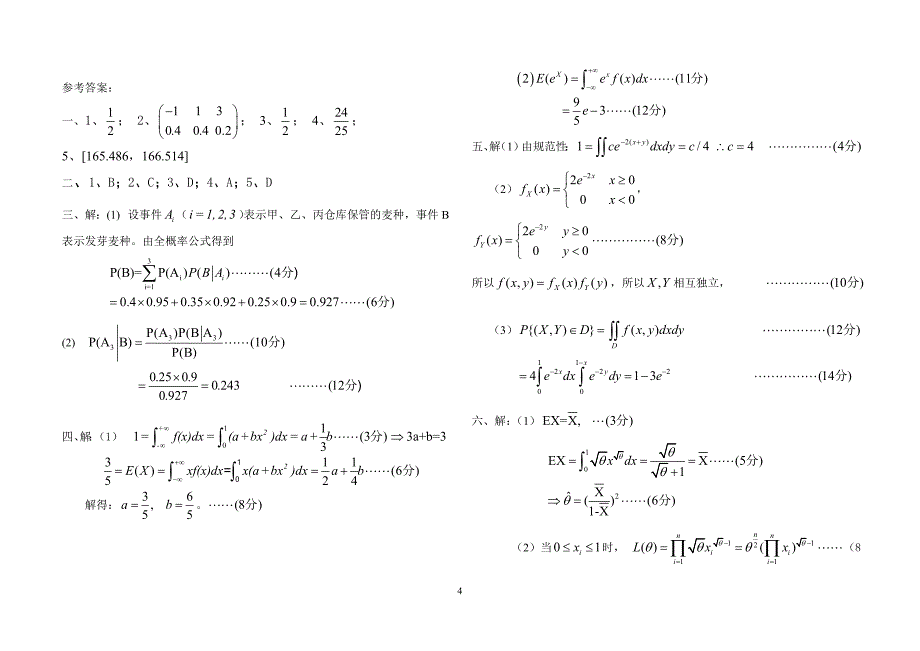 参考答案：
一、1、1/2； 2、(−1 1 3 / 0.4 0.4 0.2)； 3、1/2； 4、24/25；
5、[165.486，166.514]
二、1、B；2、C；3、D；4、A；5、D
三、解：(1) 设事件A_i（i = 1, 2, 3）表示甲、乙、丙仓库保管的麦种，事件 B
表示发芽麦种。由全概率公式得到
P(B)=∑_{i=1}^{3} P(A_i)P(B|A_i)………(4分)
=0.4×0.95+0.35×0.92+0.25×0.9=0.927……(6分)
(2) P(A_3|B)=P(A_3)P(B|A_3)/P(B)……(10分)
=0.25×0.9/0.927=0.243 ………(12分)
四、解（1） 1=∫_{-∞}^{+∞} f(x)dx=∫_0^1 (a+bx^2)dx=a+1/3 b……(3分)⇒3a+b=3
3/5=E(X)=∫_{-∞}^{+∞} xf(x)dx=∫_0^1 x(a+bx^2)dx=1/2 a+1/4 b……(6分)
解得：a=3/5, b=6/5。……(8分)
(2) E(e^X)=∫_{-∞}^{+∞} e^x f(x)dx……(11分)
=9/5 e−3……(12分)
五、解(1)由规范性：1=∬ce^{-2(x+y)}dxdy=c/4 ∴c=4 ……………(4分)
（2）f_X(x)={2e^{-2x} x≥0 / 0 x<0，
f_Y(x)={2e^{-2y} y≥0 / 0 y<0 ……………(8分)
所以 f(x,y)=f_X(x)f_Y(y)，所以X,Y相互独立， ……………(10分)
（3）P{(X,Y)∈D}=∬_D f(x,y)dxdy ……………(12分)
=4∫_0^1 e^{-2x}dx∫_0^{1-x} e^{-2y}dy=1−3e^{-2} ……………(14分)
六、解：（1） EX=X̅, …(3分)
EX=∫_0^1 √θ x^{√θ}dx=√θ/(√θ+1)=X̅……(5分)
⇒θ̂=(X̅/(1-X̅))^2……(6分)
（2）当0≤x_i≤1时， L(θ)=∏_{i=1}^{n} √θ x_i^{√θ−1}=θ^{n/2}(∏_{i=1}^{n} x_i)^{√θ−1}……（8
4